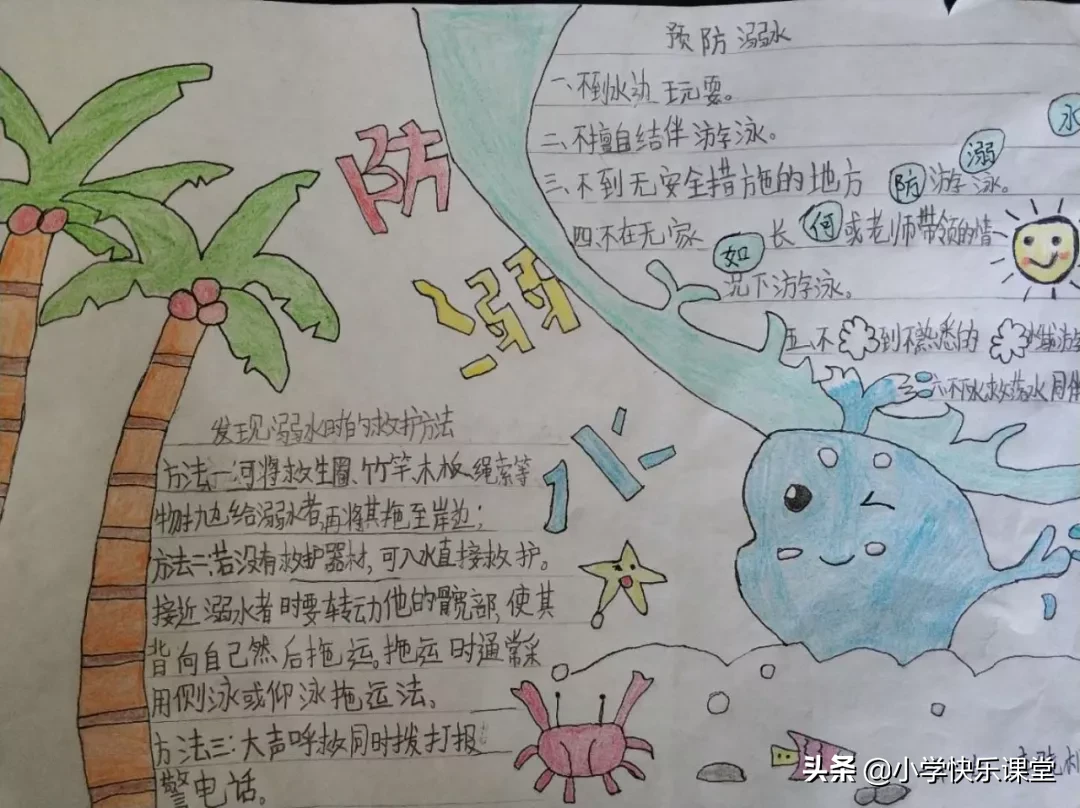 预防溺水
一、不到水边玩耍。
二、不擅自结伴游泳。
三、不到无安全措施的地方游泳。
四、不在无家长或老师带领的情
况下游泳。
五、不到不熟悉的水域游
六、不下水救落水同伴
如何防溺水
防溺水
发现溺水时的救护方法
方法一:可将救生圈、竹竿、木板、绳索等
物抛给溺水者,再将其拖至岸边;
方法二:若没有救护器材,可入水直接救护。
接近溺水者时要转动他的髋部,使其
背向自己然后拖运。拖运时通常采
用侧泳或仰泳拖运法。
方法三:大声呼救同时拨打报
警电话。
头条 @小学快乐课堂